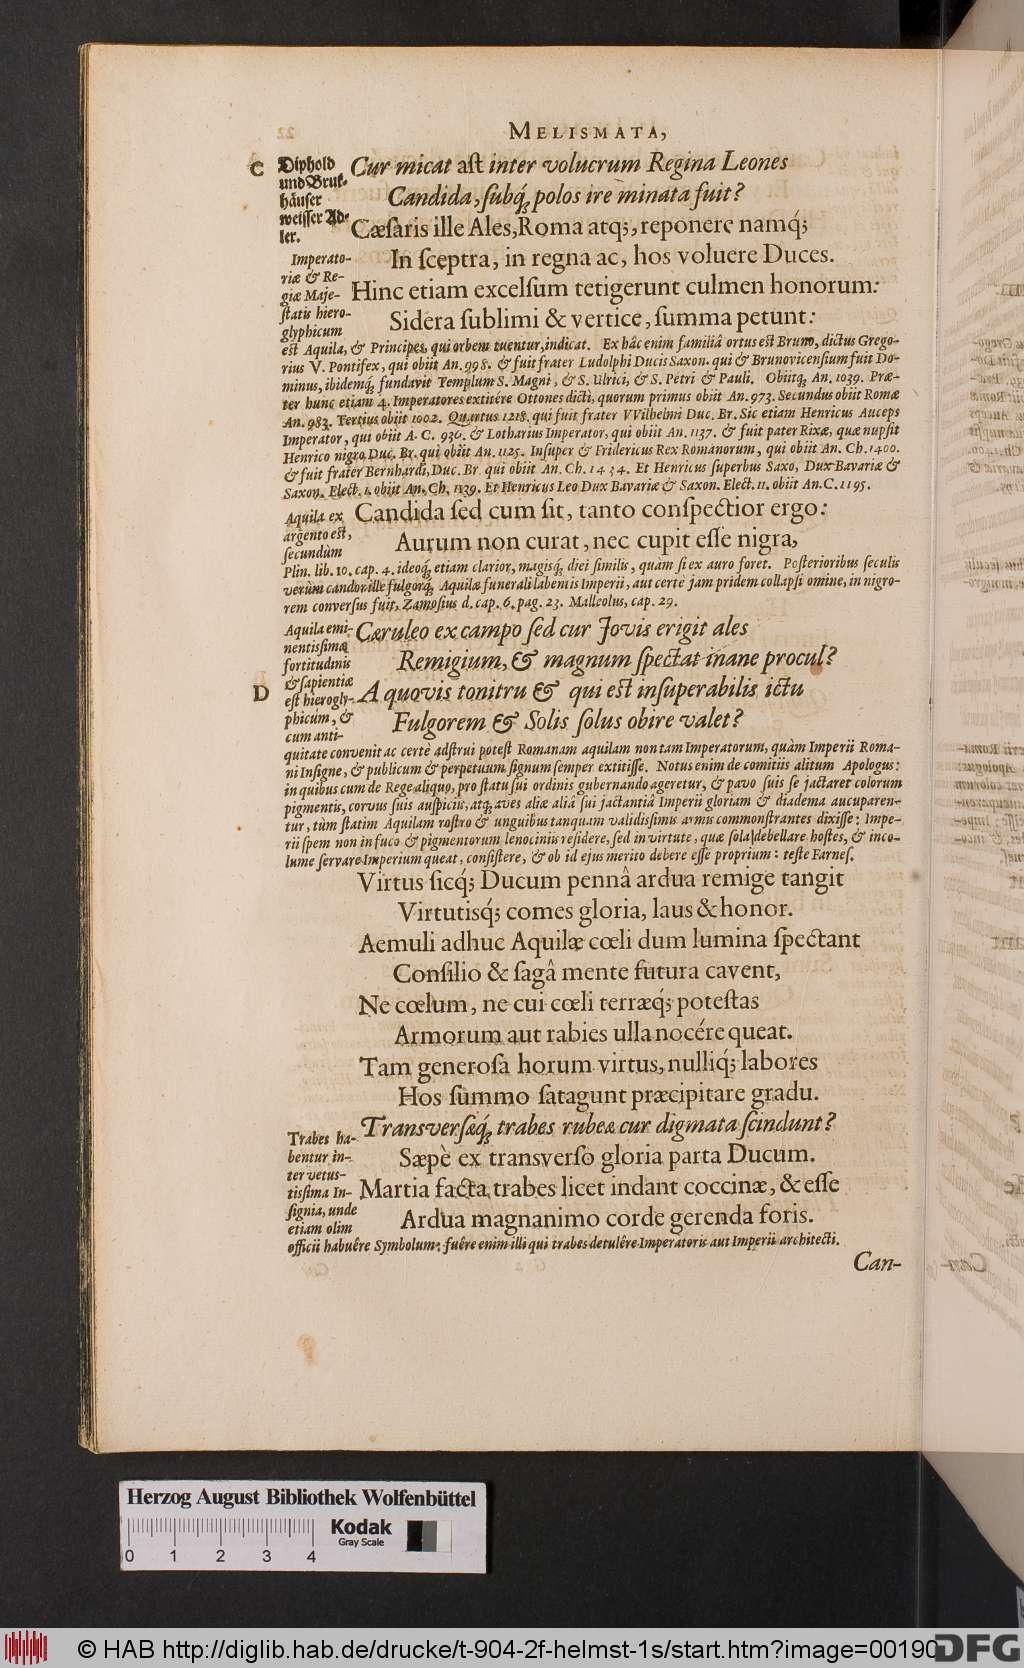 MELISMATA,
C Diphold
und Bruk-
häuser
weisser Ad-
ler.
Cur micat aſt inter volucrum Regina Leones
Candida, ſubq́; polos ire minata fuit?
Cæſaris ille Ales, Roma atq;, reponere namq́;
In ſceptra, in regna ac, hos voluere Duces.
Hinc etiam excelſum tetigerunt culmen honorum:
Sidera ſublimi & vertice, ſumma petunt:
Imperato-
riæ & Re-
giæ Maje-
ſtatis hiero-
glyphicum
eſt Aquila, & Principes, qui orbem tuentur, indicat. Ex hâc enim familiâ ortus est Bruno, dictus Grego-
rius V. Pontifex, qui obiit An. 998. & fuit frater Ludolphi Ducis Saxon. qui & Brunovicenſium fuit Do-
minus, ibidemq́; fundavit Templum S. Magni, & S. Ulrici, & S. Petri & Pauli. Obiitq́; An. 1039. Præ-
ter hunc etiam 4. Imperatores extitére Ottones dicti, quorum primus obiit An. 973. Secundus obiit Romæ
An. 983. Tertius obiit 1002. Quartus 1218. qui fuit frater VVilhelmi Duc. Br. Sic etiam Henricus Auceps
Imperator, qui obiit A. C. 936. & Lotharius Imperator, qui obiit An. 1137. & fuit pater Rixæ, quæ nupſit
Henrico nigro Duc. Br. qui obiit An. 1125. Inſuper & Fridericus Rex Romanorum, qui obiit An. Ch. 1400.
& fuit frater Bernhardi, Duc. Br. qui obiit An. Ch. 1434. Et Henricus ſuperbus Saxo, Dux Bavariæ &
Saxon. Elect. 1. obiit An. Ch. 1139. Et Henricus Leo Dux Bavariæ & Saxon. Elect. 11. obiit An. C. 1195.
Candida ſed cum ſit, tanto conſpectior ergo:
Aurum non curat, nec cupit eſſe nigra,
Aquila ex
argento eſt,
ſecundùm
Plin. lib. 10. cap. 4. ideoq́; etiam clarior, magisq́; diei ſimilis, quàm ſi ex auro foret. Poſterioribus ſeculis
verùm candor ille fulgorq́; Aquilæ funerali labentis Imperii, aut certè jam pridem collapſi omine, in nigro-
rem converſus fuit, Zamoſius d. cap. 6. pag. 23. Malleolus, cap. 29.
Cæruleo ex campo ſed cur Jovis erigit ales
Remigium, & magnum ſpectat inane procul?
D A quovis tonitru & qui eſt inſuperabilis ictu
Fulgorem & Solis ſolus obire valet?
Aquila emi-
nentiſſimæ
fortitudinis
& ſapientiæ
eſt hierogly-
phicum, &
cum anti-
quitate convenit ac certè adſtrui poteſt Romanam aquilam non tam Imperatorum, quàm Imperii Roma-
ni Inſigne, & publicum & perpetuum ſignum ſemper extitiſſe. Notus enim de comitiis alitum Apologus:
in quibus cum de Rege aliquo, pro ſtatu ſui ordinis gubernando ageretur, & pavo ſuis ſe jactaret colorum
pigmentis, corvus ſuis auſpiciis, atq́; aves aliæ aliâ ſui jactantiâ Imperii gloriam & diadema aucuparen-
tur, tùm ſtatim Aquilam roſtro & unguibus tanquam validiſſimis armis commonſtrantes dixiſſe: Impe-
rii ſpem non in fuco & pigmentorum lenociniis reſidere, ſed in virtute, quæ ſola debellare hoſtes, & inco-
lume ſervare Imperium queat, conſiſtere, & ob id ejus merito debere eſſe proprium: teſte Farneſ.
Virtus ſicq́; Ducum pennâ ardua remige tangit
Virtutisq́; comes gloria, laus & honor.
Aemuli adhuc Aquilæ cœli dum lumina ſpectant
Conſilio & ſagâ mente futura cavent,
Ne cœlum, ne cui cœli terræq́; poteſtas
Armorum aut rabies ulla nocére queat.
Tam generoſa horum virtus, nulliq́; labores
Hos ſummo ſatagunt præcipitare gradu.
Transverſæq́; trabes rubeæ cur digmata ſcindunt?
Sæpè ex transverſo gloria parta Ducum.
Martia facta trabes licet indant coccinæ, & eſſe
Ardua magnanimo corde gerenda foris.
Trabes ha-
bentur in-
ter vetus-
tiſſima In-
ſignia, unde
etiam olim
officii habuêre Symbolum: fuêre enim illi qui trabes detulêre Imperatoris aut Imperii architecti.
Can-
Herzog August Bibliothek Wolfenbüttel
Kodak
Gray Scale
0 1 2 3 4
© HAB http://diglib.hab.de/drucke/t-904-2f-helmst-1s/start.htm?image=00190
DFG